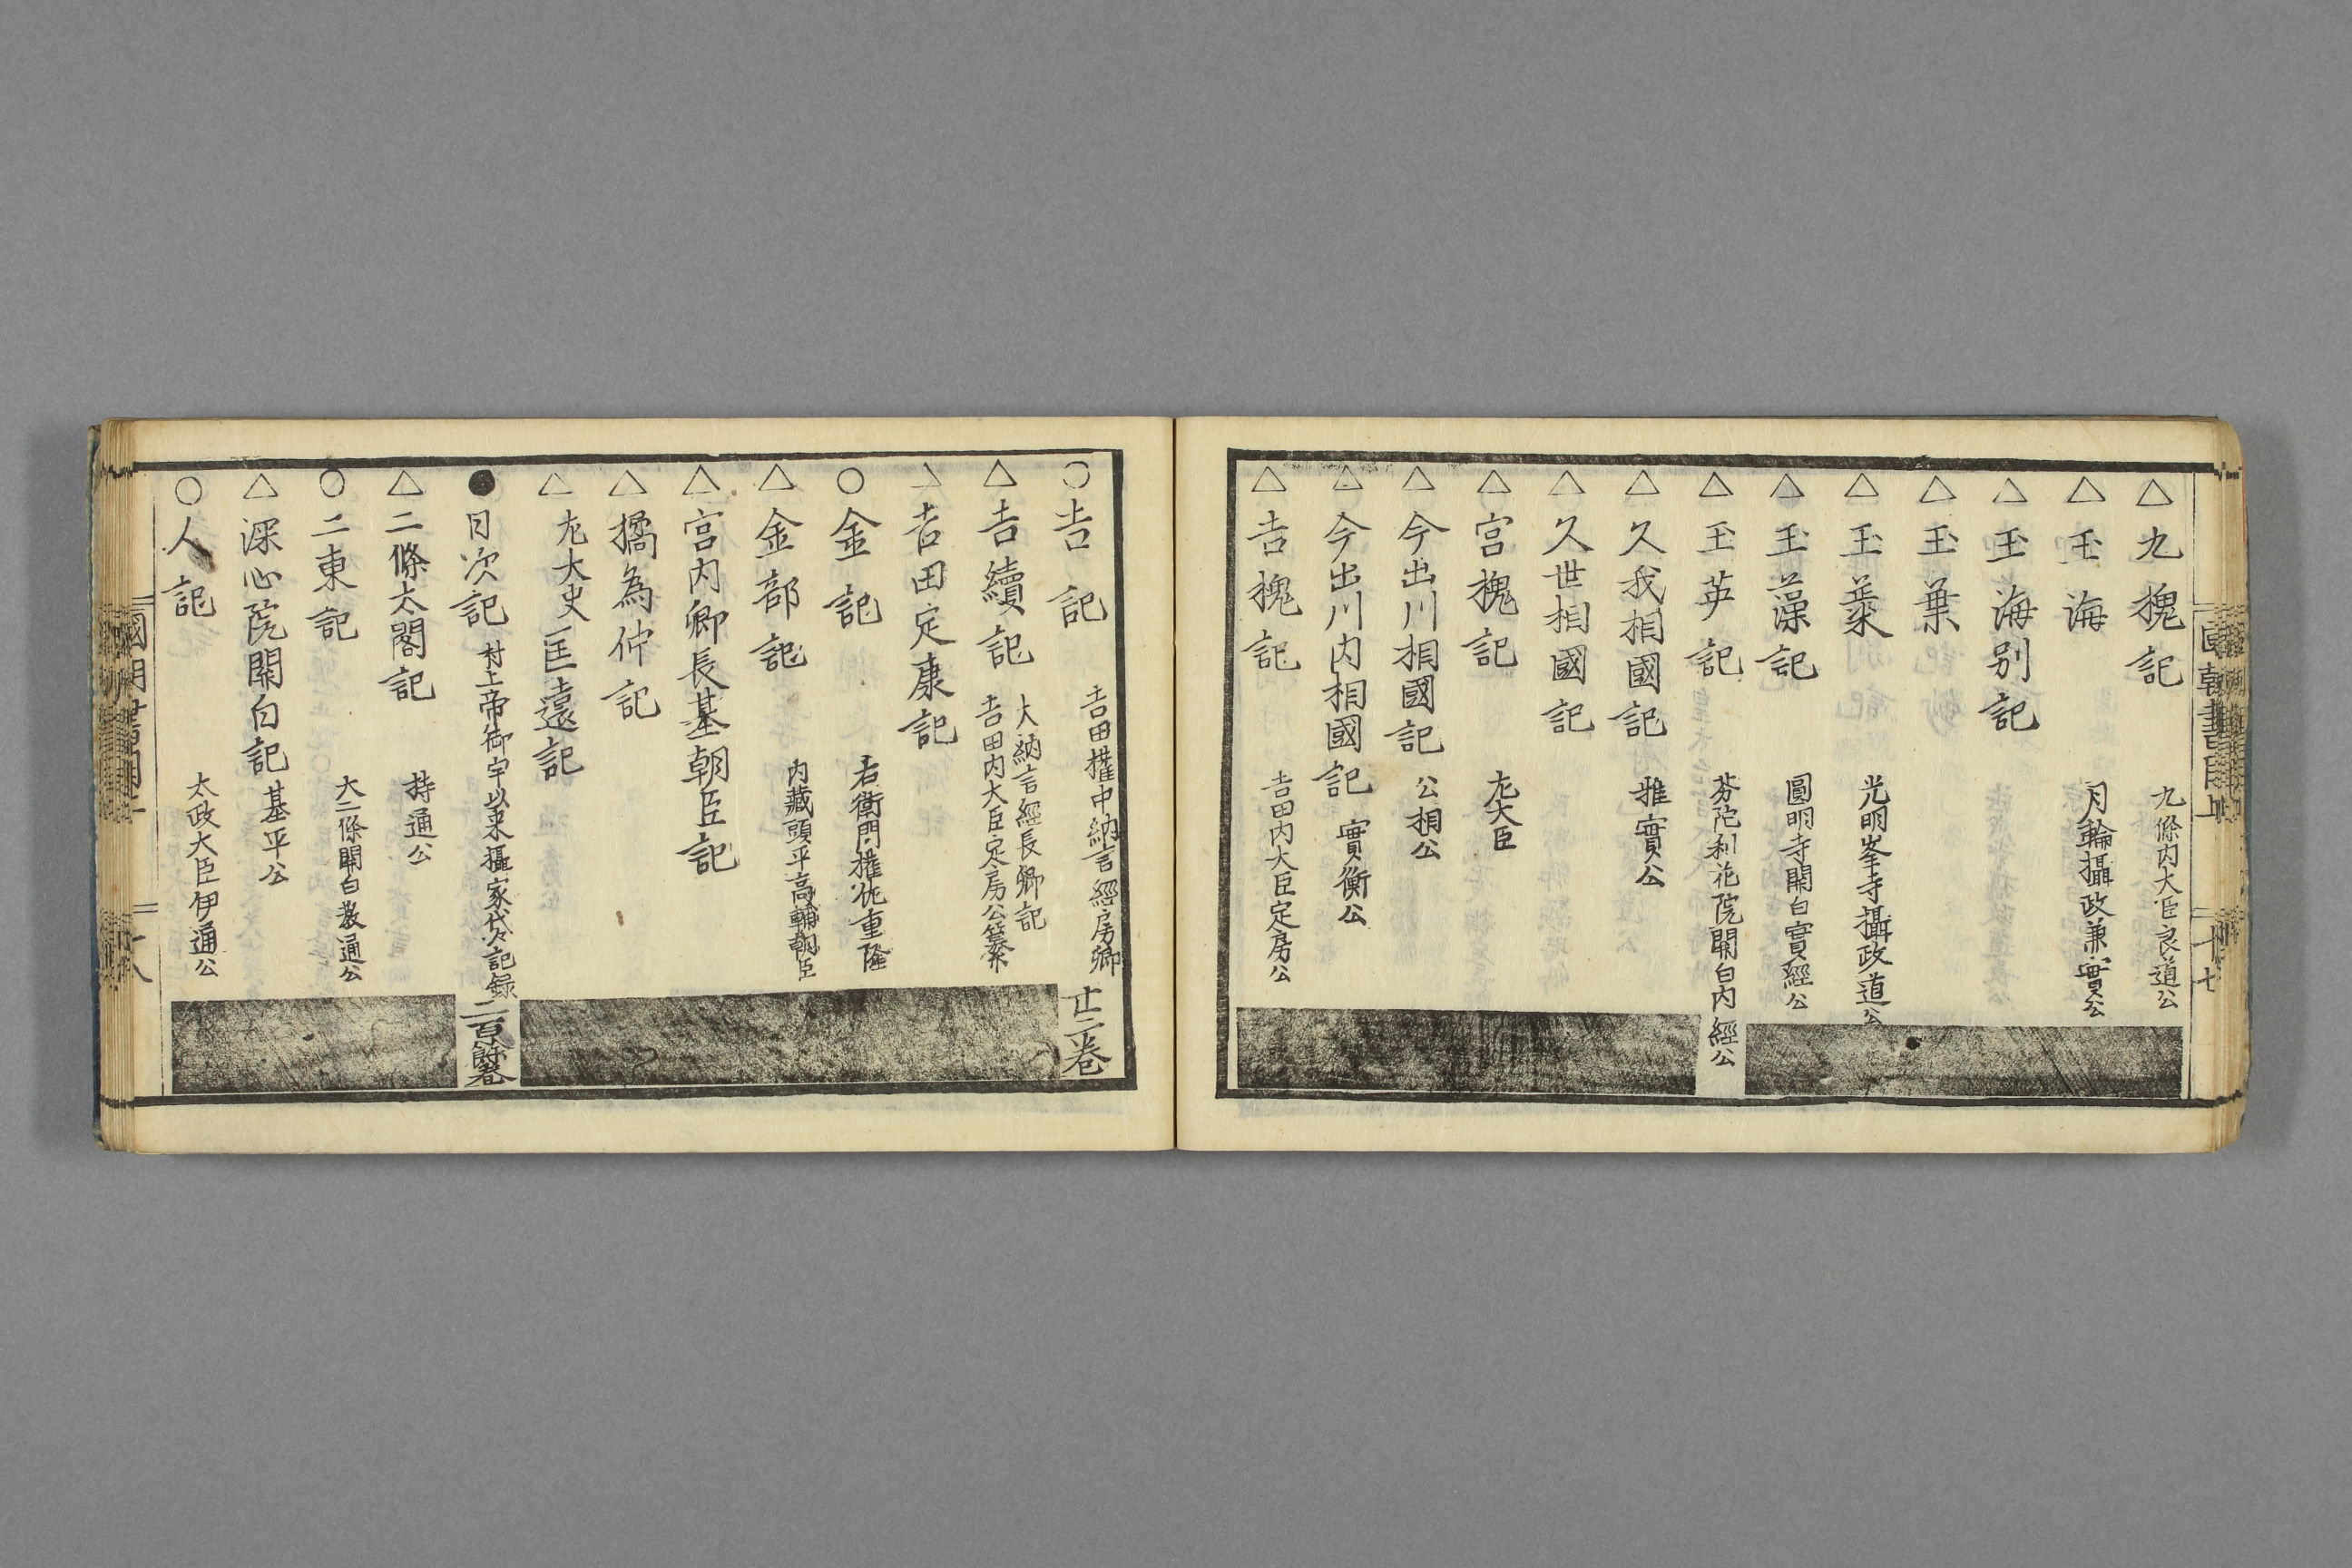 國朝書目上 十七
△九槐記 九條内大臣良道公
△玉海 月輪攝政兼實公
△玉海別記
△玉葉
△玉蘂 光明峯寺攝政道公
△玉藻記 圓明寺關白實經公
△玉英記 芬陀利花院關白内經公
△久我相國記 雅實公
△久世相國記
△宮槐記 左大臣
△今出川相國記 公相公
△今出川内相國記 實衡公
△吉槐記 吉田内大臣定房公
○吉記 吉田權中納言經房卿 廿二巻
△吉續記 大納言經長卿記 吉田内大臣定房公纂
△吉田定康記
○金記 右衛門權佐重隆
△金部記 内藏頭平高輔朝臣
△宮内卿長基朝臣記
△橘為仲記
△左大史匡遠記
●日次記 村上帝御宇以来攝家代々記録 二百餘巻
△二條太閤記 持通公
○二東記 大二條關白教通公
△深心院關白記 基平公
○人記 太政大臣伊通公
十八